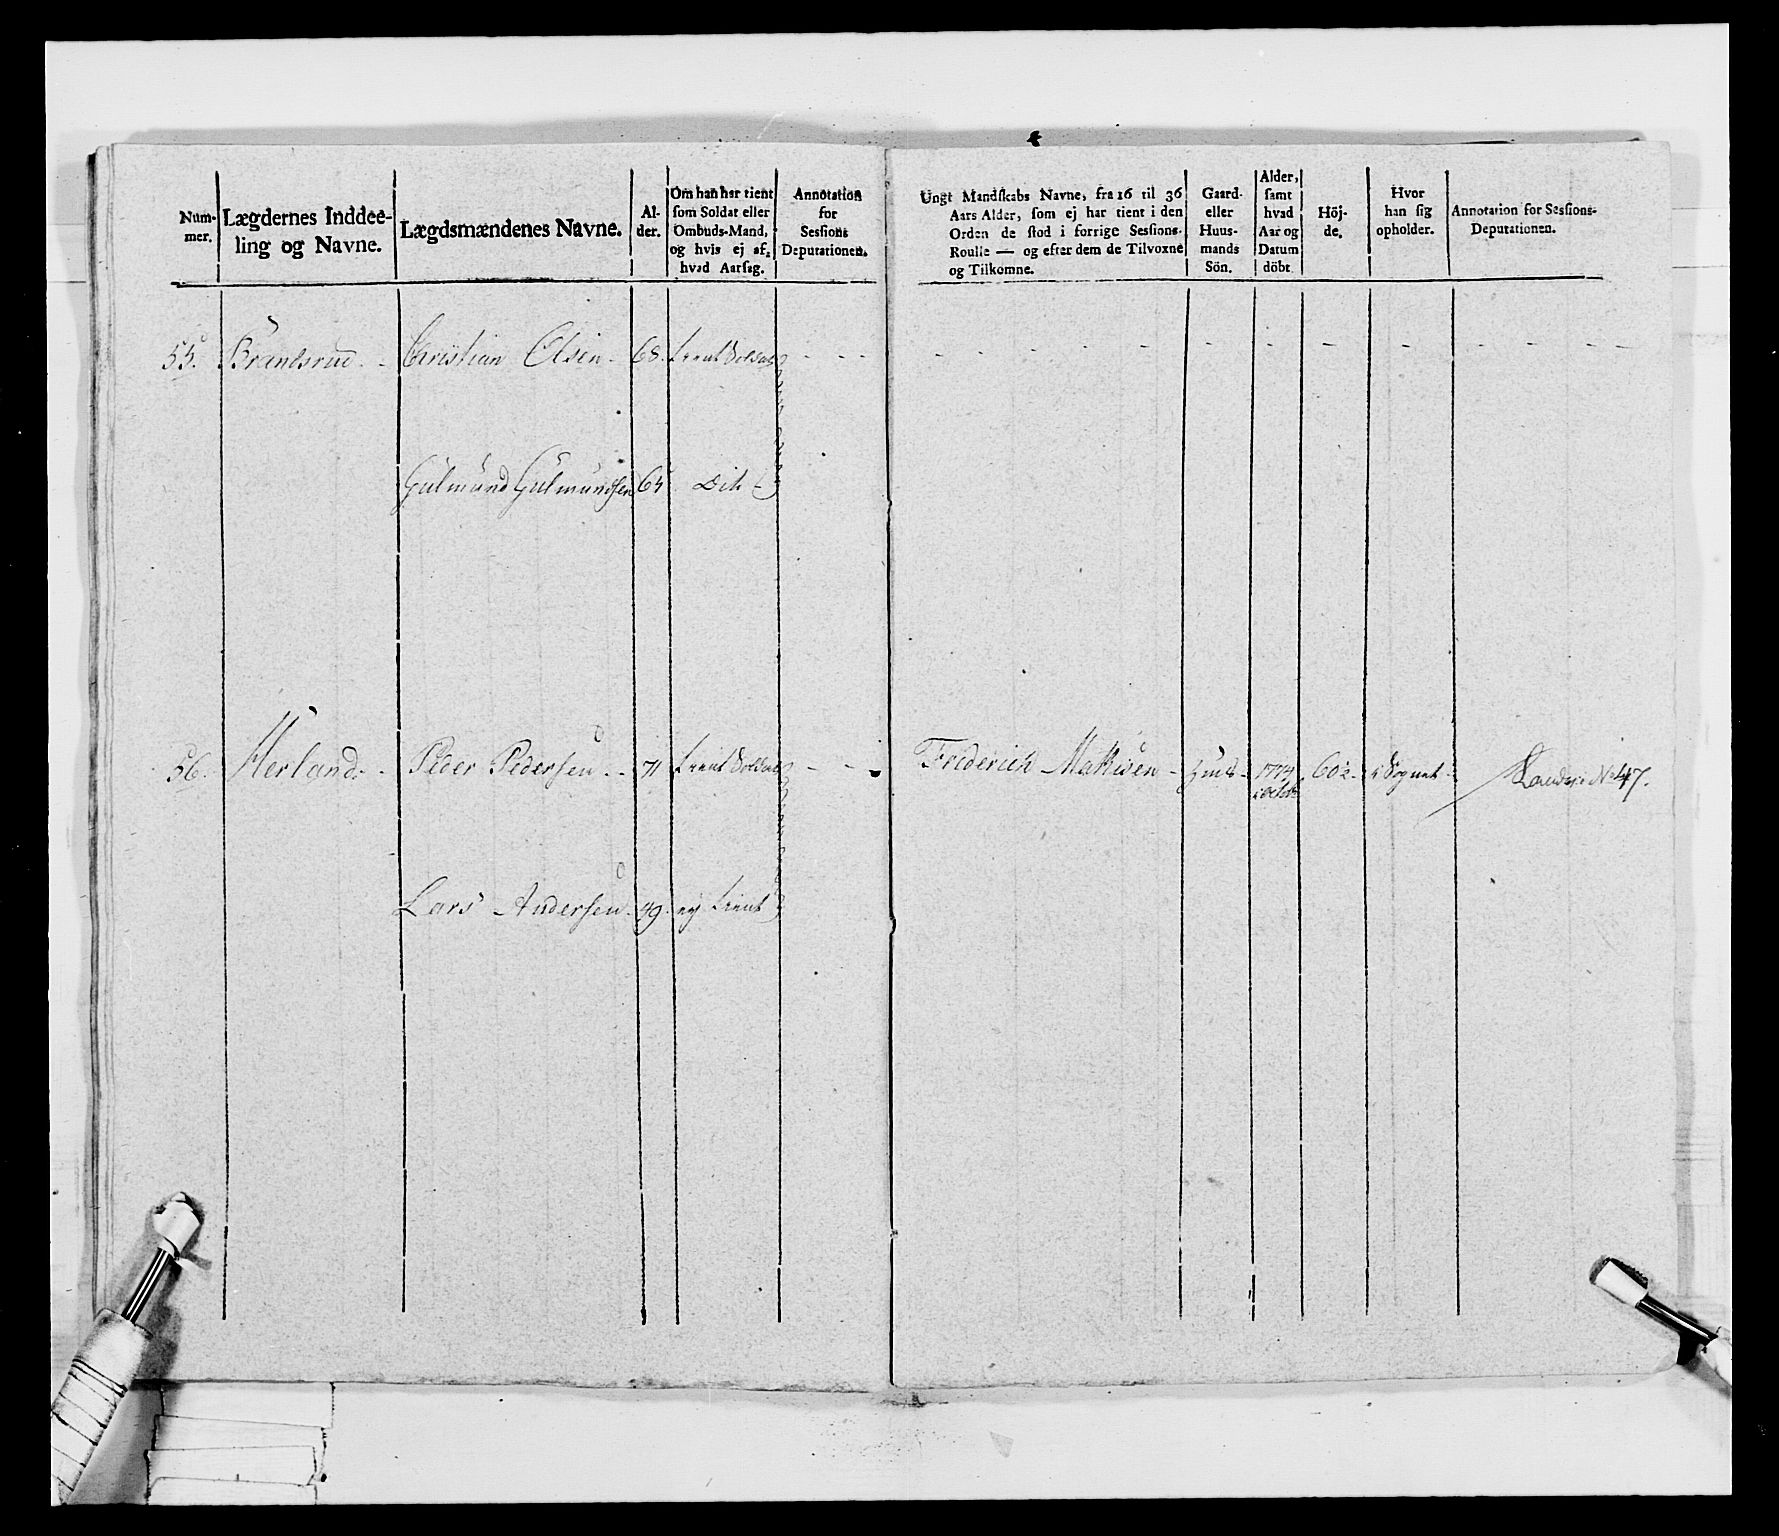 Num-
mer.
Lægdernes Inddee-
ling og Navne.
Lægdsmændenes Navne.
Al-
der.
Om han har tient
som Soldat eller
Ombuds-Mand,
og hvis ej af,
hvad Aarsag.
Annotation
for
Sessions
Deputationen.
Ungt Mandskabs Navne, fra 16 til 36
Aars Alder, som ej har tient i den
Orden de stod i forrige Sessions-
Roulle — og efter dem de Tilvoxne
og Tilkomne.
Gaard-
eller
Huus-
mands
Sön.
Alder,
samt
hvad
Aar og
Datum
döbt.
Höj-
de.
Hvor
han sig
opholder.
Annotation for Sessions-
Deputationen.
55. Christian Olsen 68. tient Soldat
Gulmund Gulmundsen 65 Dito
56. Herland Peder Pedersen 71 tient Soldat Friderich 1774 60 i Sognet No 47.
Lars Andersen 49. ej tient